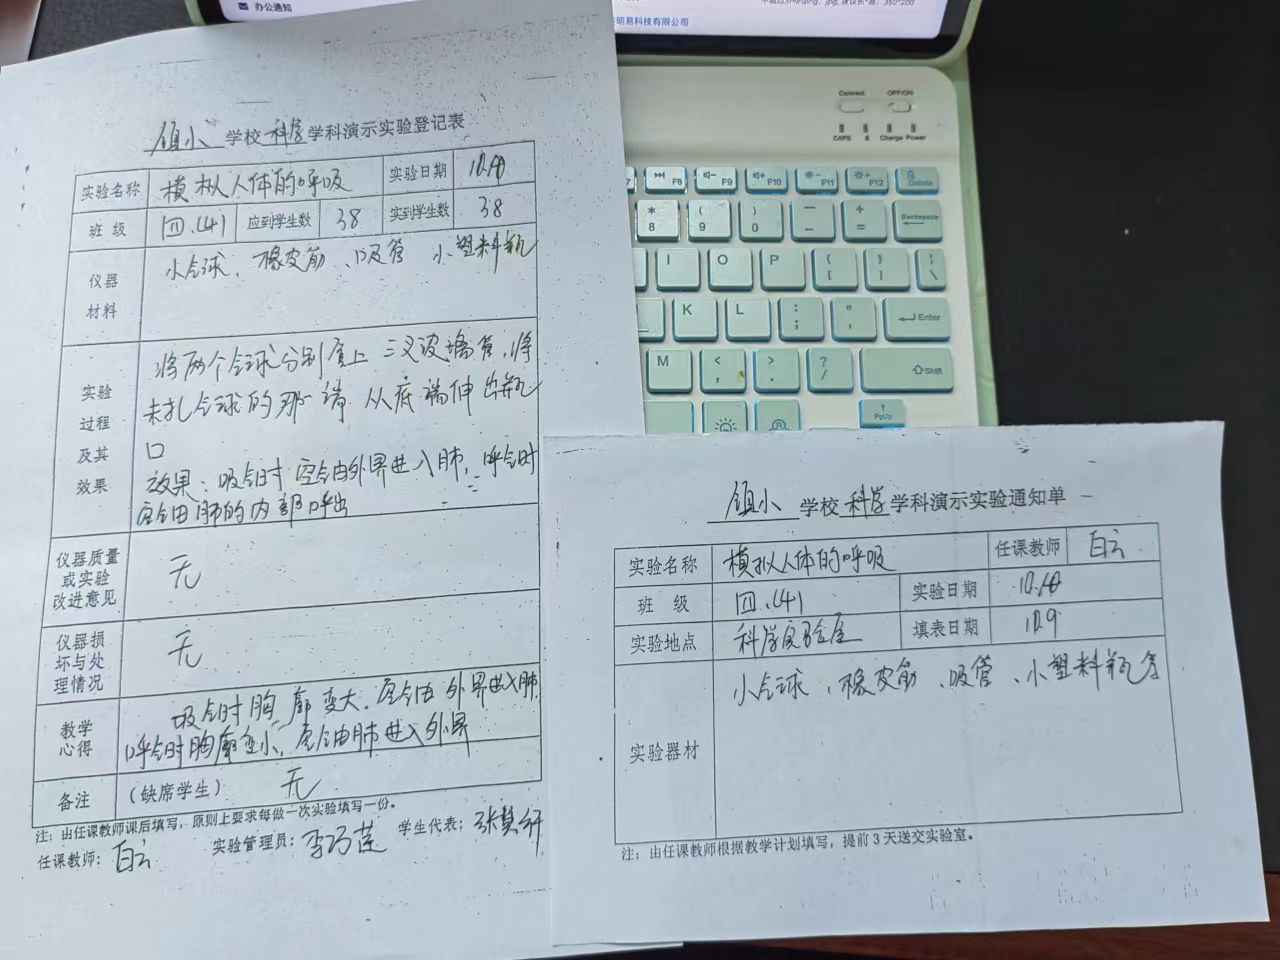 办公通知
明易科技有限公司
镇小 学校 科学 学科演示实验登记表
实验名称 模拟人体的呼吸 实验日期
班级 四.(4) 应到学生数 38 实到学生数 38
仪器材料 小气球、橡皮筋、吸管 小塑料瓶
实验过程及其效果
将两个气球分别套上三叉玻璃管,将
未扎气球的那一端从底端伸出瓶
口
效果:吸气时空气由外界进入肺,呼气时
空气由肺的内部呼出
仪器质量或实验改进意见 无
仪器损坏与处理情况 无
教学心得
吸气时胸廓变大,空气由外界进入肺,
呼气时胸廓变小,空气由肺进入外界
备注 (缺席学生) 无
注:由任课教师课后填写,原则上要求每做一次实验填写一份。
任课教师:白云 实验管理员:李巧莲 学生代表:张慧
镇小 学校 科学 学科演示实验通知单
实验名称 模拟人体的呼吸 任课教师 白云
班级 四.(4) 实验日期
实验地点 科学实验室 填表日期
实验器材 小气球、橡皮筋、吸管、小塑料瓶等
注:由任课教师根据教学计划填写,提前3天送交实验室。
Connect OFF/ON
CAPS Charge Power
F7 F8 F9 F10 F11 F12 Delete
* 8 ( 9 ) 0 — - + = Backspace
I O P { [ } ] | \
K L : ; " ' Enter
M < , > . ? / Shift
PgUp